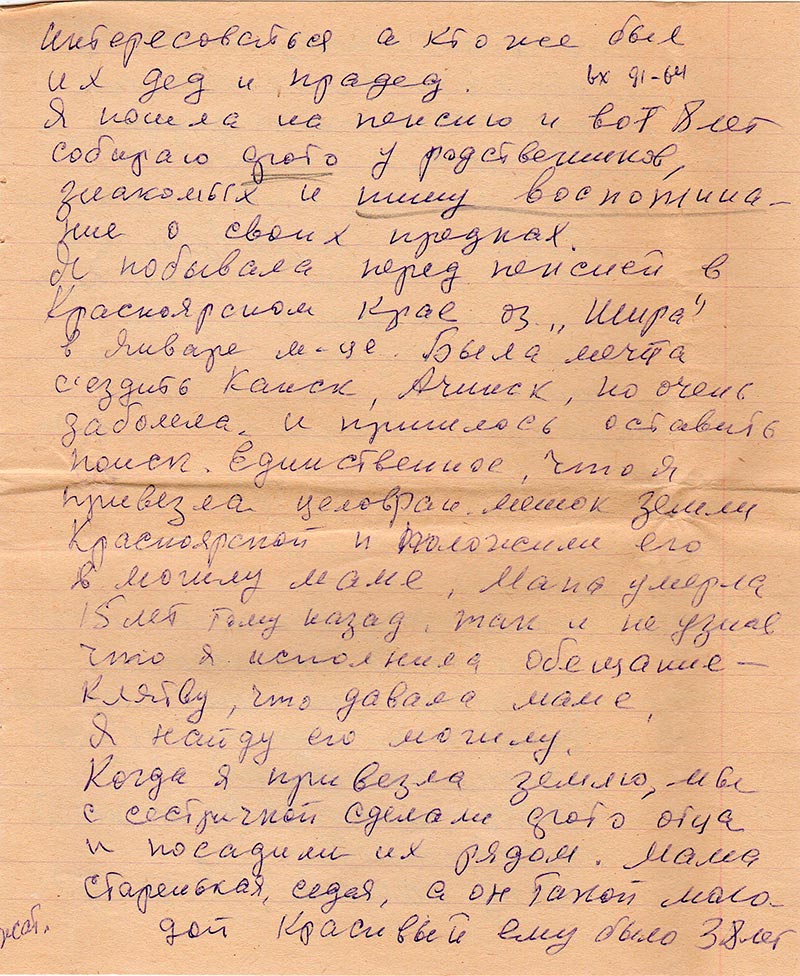 Интересоваться а кто же был
их дед и прадед. вх 91-64
Я пошла на пенсию и вот 8 лет
собираю фото у родственников,
знакомых и пишу воспомина-
ние о своих предках.
Я побывала перед пенсией в
Красноярском крае оз „Шира"
в январе м-це. Была мечта
с'ездить Канск, Ачинск, но очень
заболела. и пришлось оставить
поиск. Единственное, что я
привезла целофан. мешок земли
Красноярской и положили его
в могилу маме, Мама умерла
15 лет тому назад. так и не узнав
что я исполнила обещание–
клятву, что давала маме,
Я найду его могилу.
Когда я привезла землю, мы
с сестричкой сделали фото отца
и посадили их рядом. Мама
старенькая, седая, а он такой моло-
дой красивый ему было 38 лет